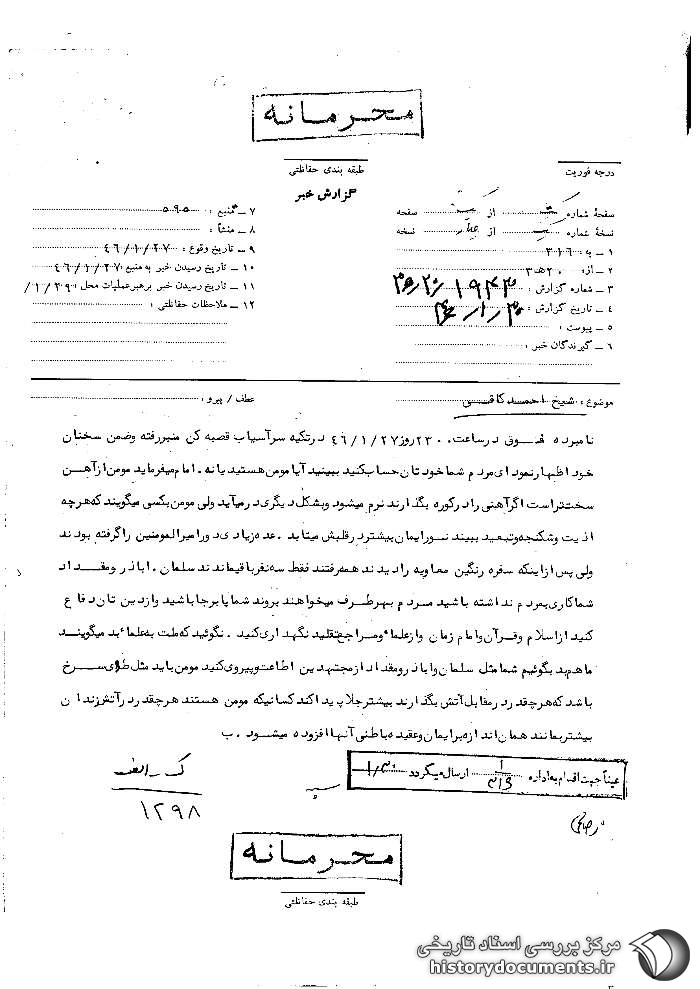 محرمانه
درجه فوریت
طبقه بندی حفاظتی
گزارش خبر
صفحهٔ شماره از صفحه
نسخهٔ شماره از نسخه
۱ ـ به : ۳۱۶
۲ ـ از: ۲۰ هـ ۳
۳ ـ شماره گزارش :
۴ ـ تاریخ گزارش :
۵ ـ پیوست :
۶ ـ گیرندگان خبر :
۷ ـ منبع : ۵۹۵
۸ ـ منشأ :
۹ ـ تاریخ وقوع : ۴۶/۱/۲۷
۱۰ ـ تاریخ رسیدن خبر به منبع : ۴۶/۱/۲۷
۱۱ ـ تاریخ رسیدن خبر برهبر عملیات محل : /۱/۲۹
۱۲ ـ ملاحظات حفاظتی :
موضوع : شیخ احمد کافی
عطف / پیرو :
نامبرده فوق در ساعت ۲۳۰۰ روز ۴۶/۱/۲۷ در تکیه سرآسیاب قصبه کن منبر رفته وضمن سخنان
خود اظهار نمود ای مردم شما خودتان حساب کنید ببینید آیا مومن هستید یا نه . امام میفرماید مومن از آهن
سختتر است اگر آهنی را در کوره بگذارند نرم میشود وبشکل دیگری در میآید ولی مومن بکسی میگویند که هرچه
اذیت وشکنجه وتبعید ببیند نور ایمان بیشتر در قلبش میتابد . عده زیادی دور امیرالمومنین را گرفته بودند
ولی پس از اینکه سفره رنگین معاویه را دیدند همه رفتند فقط سه نفر باقیماندند سلمان . اباذر ومقداد
شما کاری بمردم نداشته باشید مردم بهر طرف میخواهند بروند شما پابرجا باشید واز دین تان دفاع
کنید از اسلام وقرآن وامام زمان واز علما ومراجع تقلید نگهداری کنید . نگوئید که ملت به علما بد میگویند
ما هم بد بگوئیم شما مثل سلمان واباذر ومقداد از مجتهدین اطاعت وپیروی کنید مومن باید مثل طلای سرخ
باشد که هر چقدر در مقابل آتش بگذارند بیشتر جلا پیدا کند کسانیکه مومن هستند هر چقدر در آتش زندان
بیشتر بمانند همان اندازه بر ایمان وعقیده باطنی آنها افزوده میشود . ب
عیناً جهت اقدام به اداره ۳۱۶ ارسال میگردد ۱/۳۰
ک ـ الف
۱۲۹۸
محرمانه
طبقه بندی حفاظتی
مرکز بررسی اسناد تاریخی
historydocuments.ir